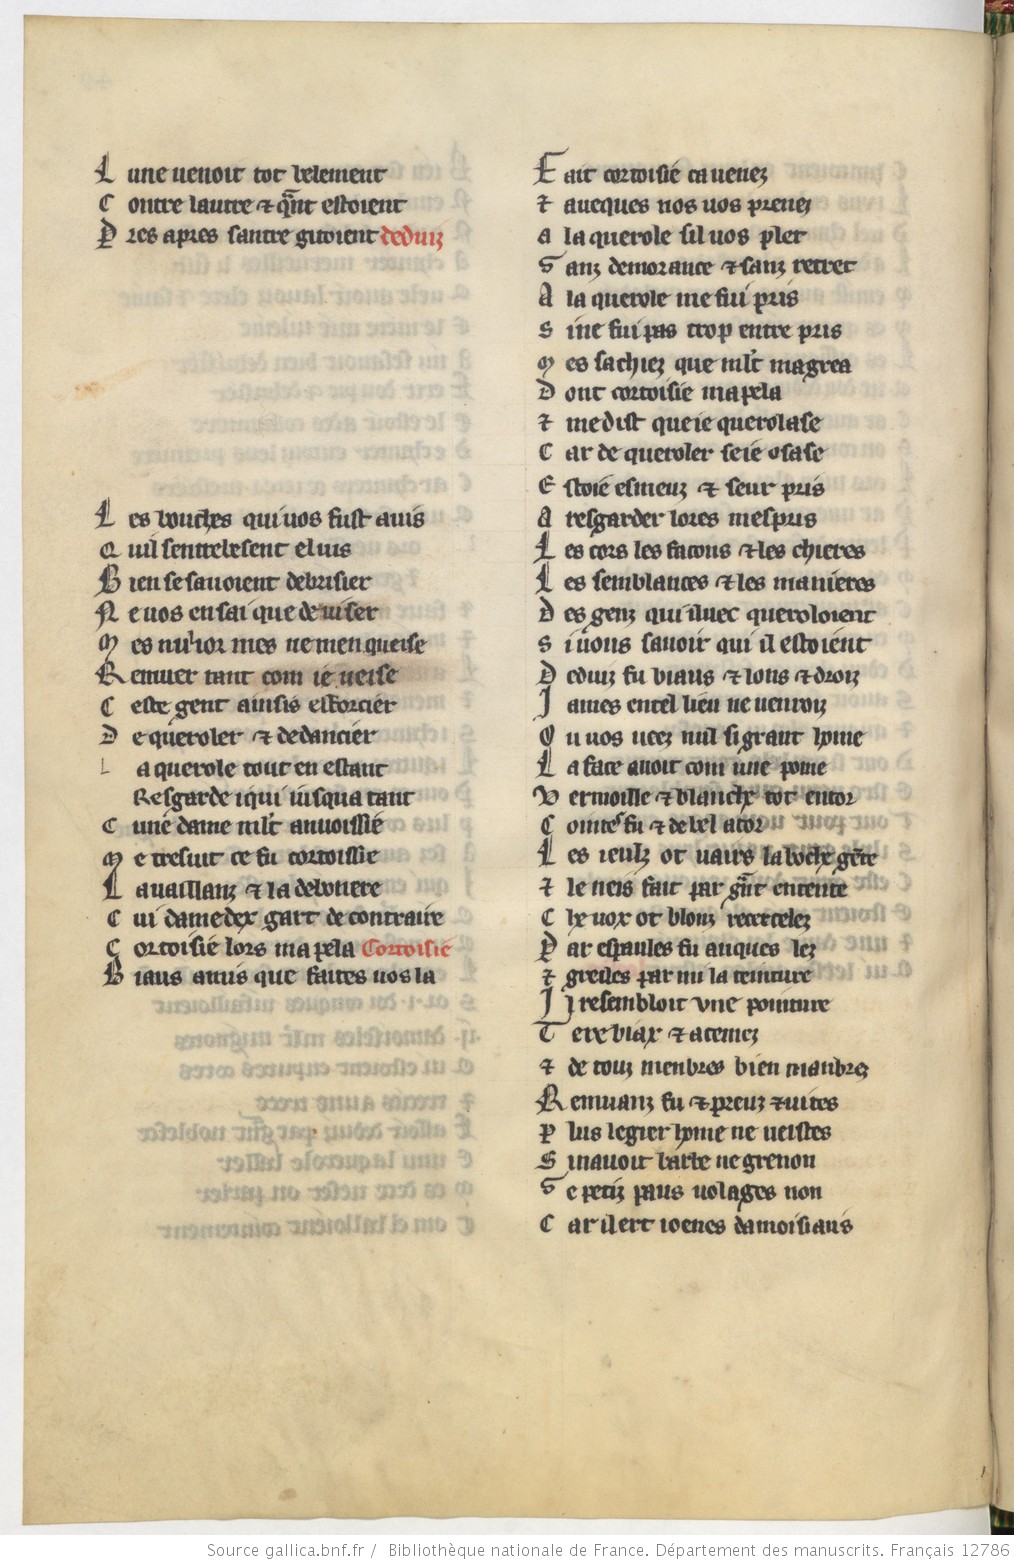 L une uenoit tot belement
C ontre lautre & qant estoient
P res apres santre gitoient deduiz
L es bouches qui uos fust auis
Q uil sentrebesent el uis
B ien se sauoient debrisier
N e uos en sai que deuiser
M es nul ior mes ne men queise
R emuer tant com ie ueise
C este gent ainsis esforcier
D e queroler & de dancier
L a querole tout en estant
Resgarde iqui iusqua tant
C une dame mlt anuoissie
M e tresuit ce fu cortoissie
L auaillanz & la debonere
C ui damedex gart de contraire
C ortoisie lors mapela Cortoisie
B iaus amis que faites uos la
F ait cortoisie ca uenez
& auecques nos uos prenez
A la querole sil uos plet
S anz demorance & sanz retret
A la querole me sui pris
S i ne fui pas trop entre pris
M es sachiez que mlt magrea
D ont cortoisie mapela
& me dist que ie querolase
C ar de queroler se ie osase
E stoie esmeuz & seur pris
A resgarder lores mespris
L es cors les facons & les chieres
L es semblances & les manieres
D es genz qui iluec queroloient
S i uons sauoir qui il estoient
D eduiz fu biaus & lons & droiz
J ames en tel lieu ne uenroiz
O u uos ueez nul si grant home
L a face auoit com une pome
V ermoille & blanche tot entor
C ointes fu & de bel ator
L es ieulz ot uairs la boche gente
& le neis fait par grant entente
C he uox ot blonz recercelez
P ar espaules fu auques lez
& gresles par mi la ceinture
J l resembloit vne pointure
T ere biax & acemez
& de touz menbres bien manbrez
R emuanz fu & preuz & uites
P lus legier home ne ueistes
S i nauoit barbe ne grenon
S e petiz paus uolages non
C ar il ert ioenes damoisiaus
Source gallica.bnf.fr / Bibliothèque nationale de France. Département des manuscrits. Français 12786